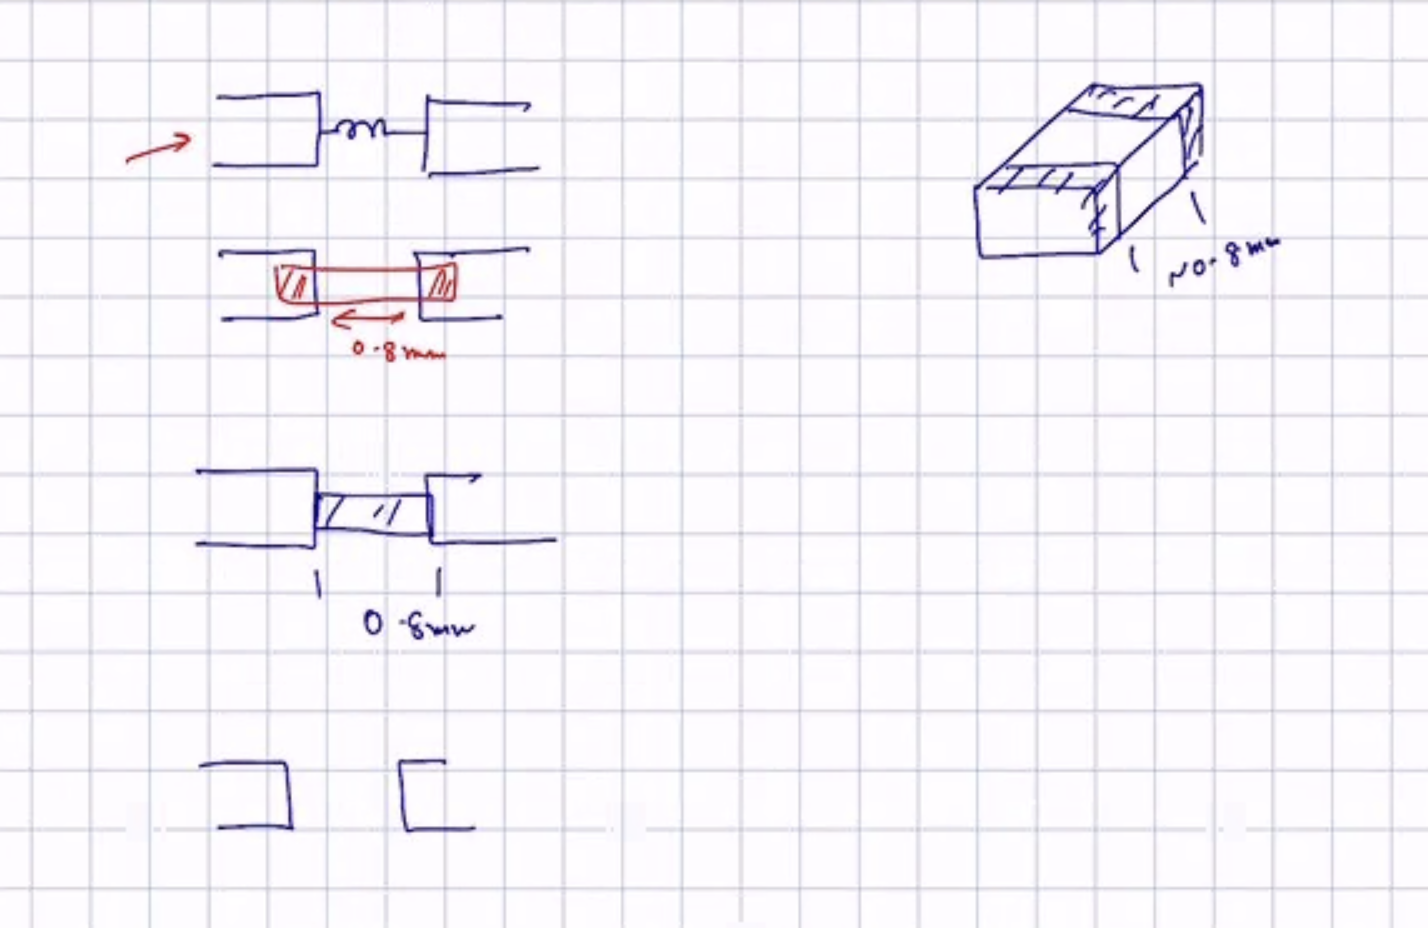 ~0.8mm
0.8mm
0.8mm